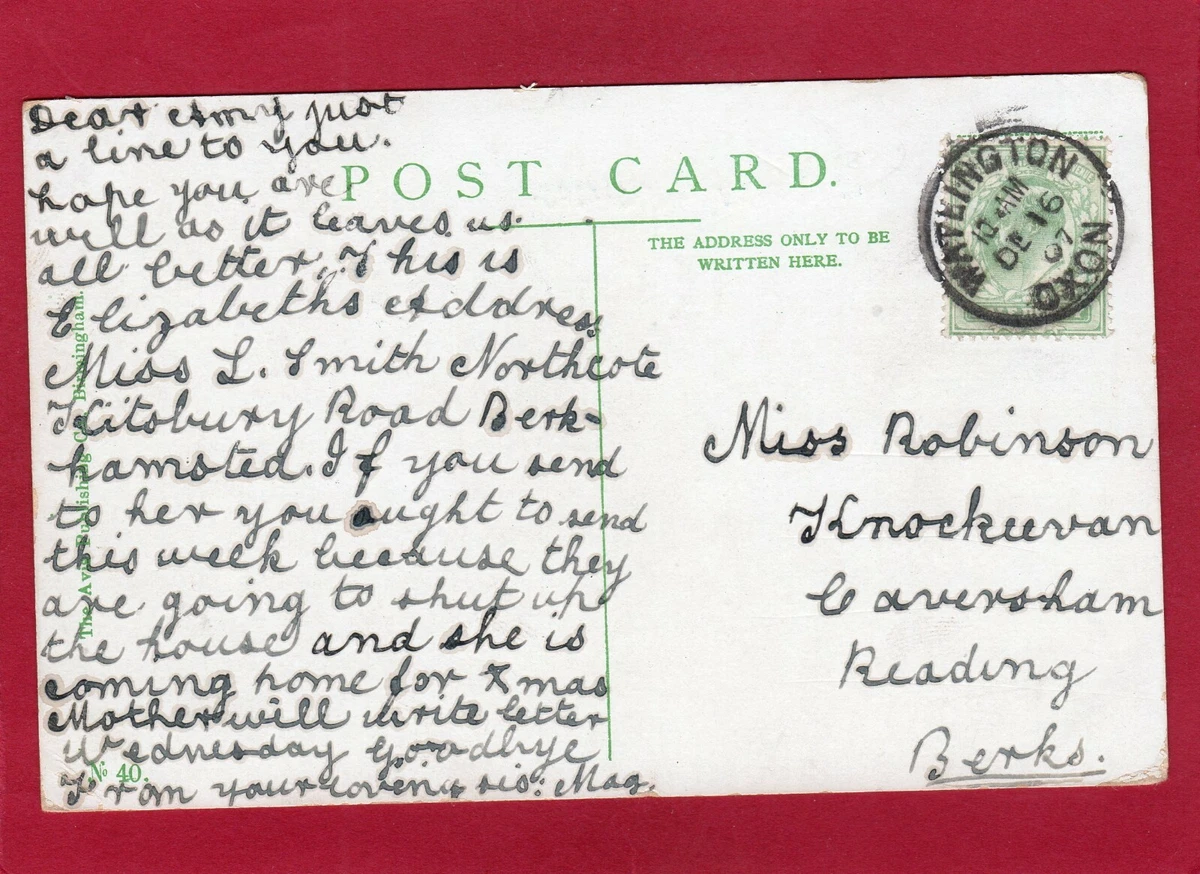 Dear Amy just
a line to you.
hope you are
well as it leaves us
all better. This is
Elizabeths Address
Miss L. Smith Northcote
Kitsbury Road Berk-
hamsted. If you send
to her you ought to send
this week because they
are going to shut up
the house and she is
coming home for Xmas
Mother will write letter
Wednesday Goodbye
From your loving sis: Mag.
POST CARD.
THE ADDRESS ONLY TO BE
WRITTEN HERE.
WATLINGTON
10 AM
DE 16
07
OXON
Miss Robinson
Knockeevan
Caversham
Reading
Berks.
Publishing Co. Birmingham.
No 40.